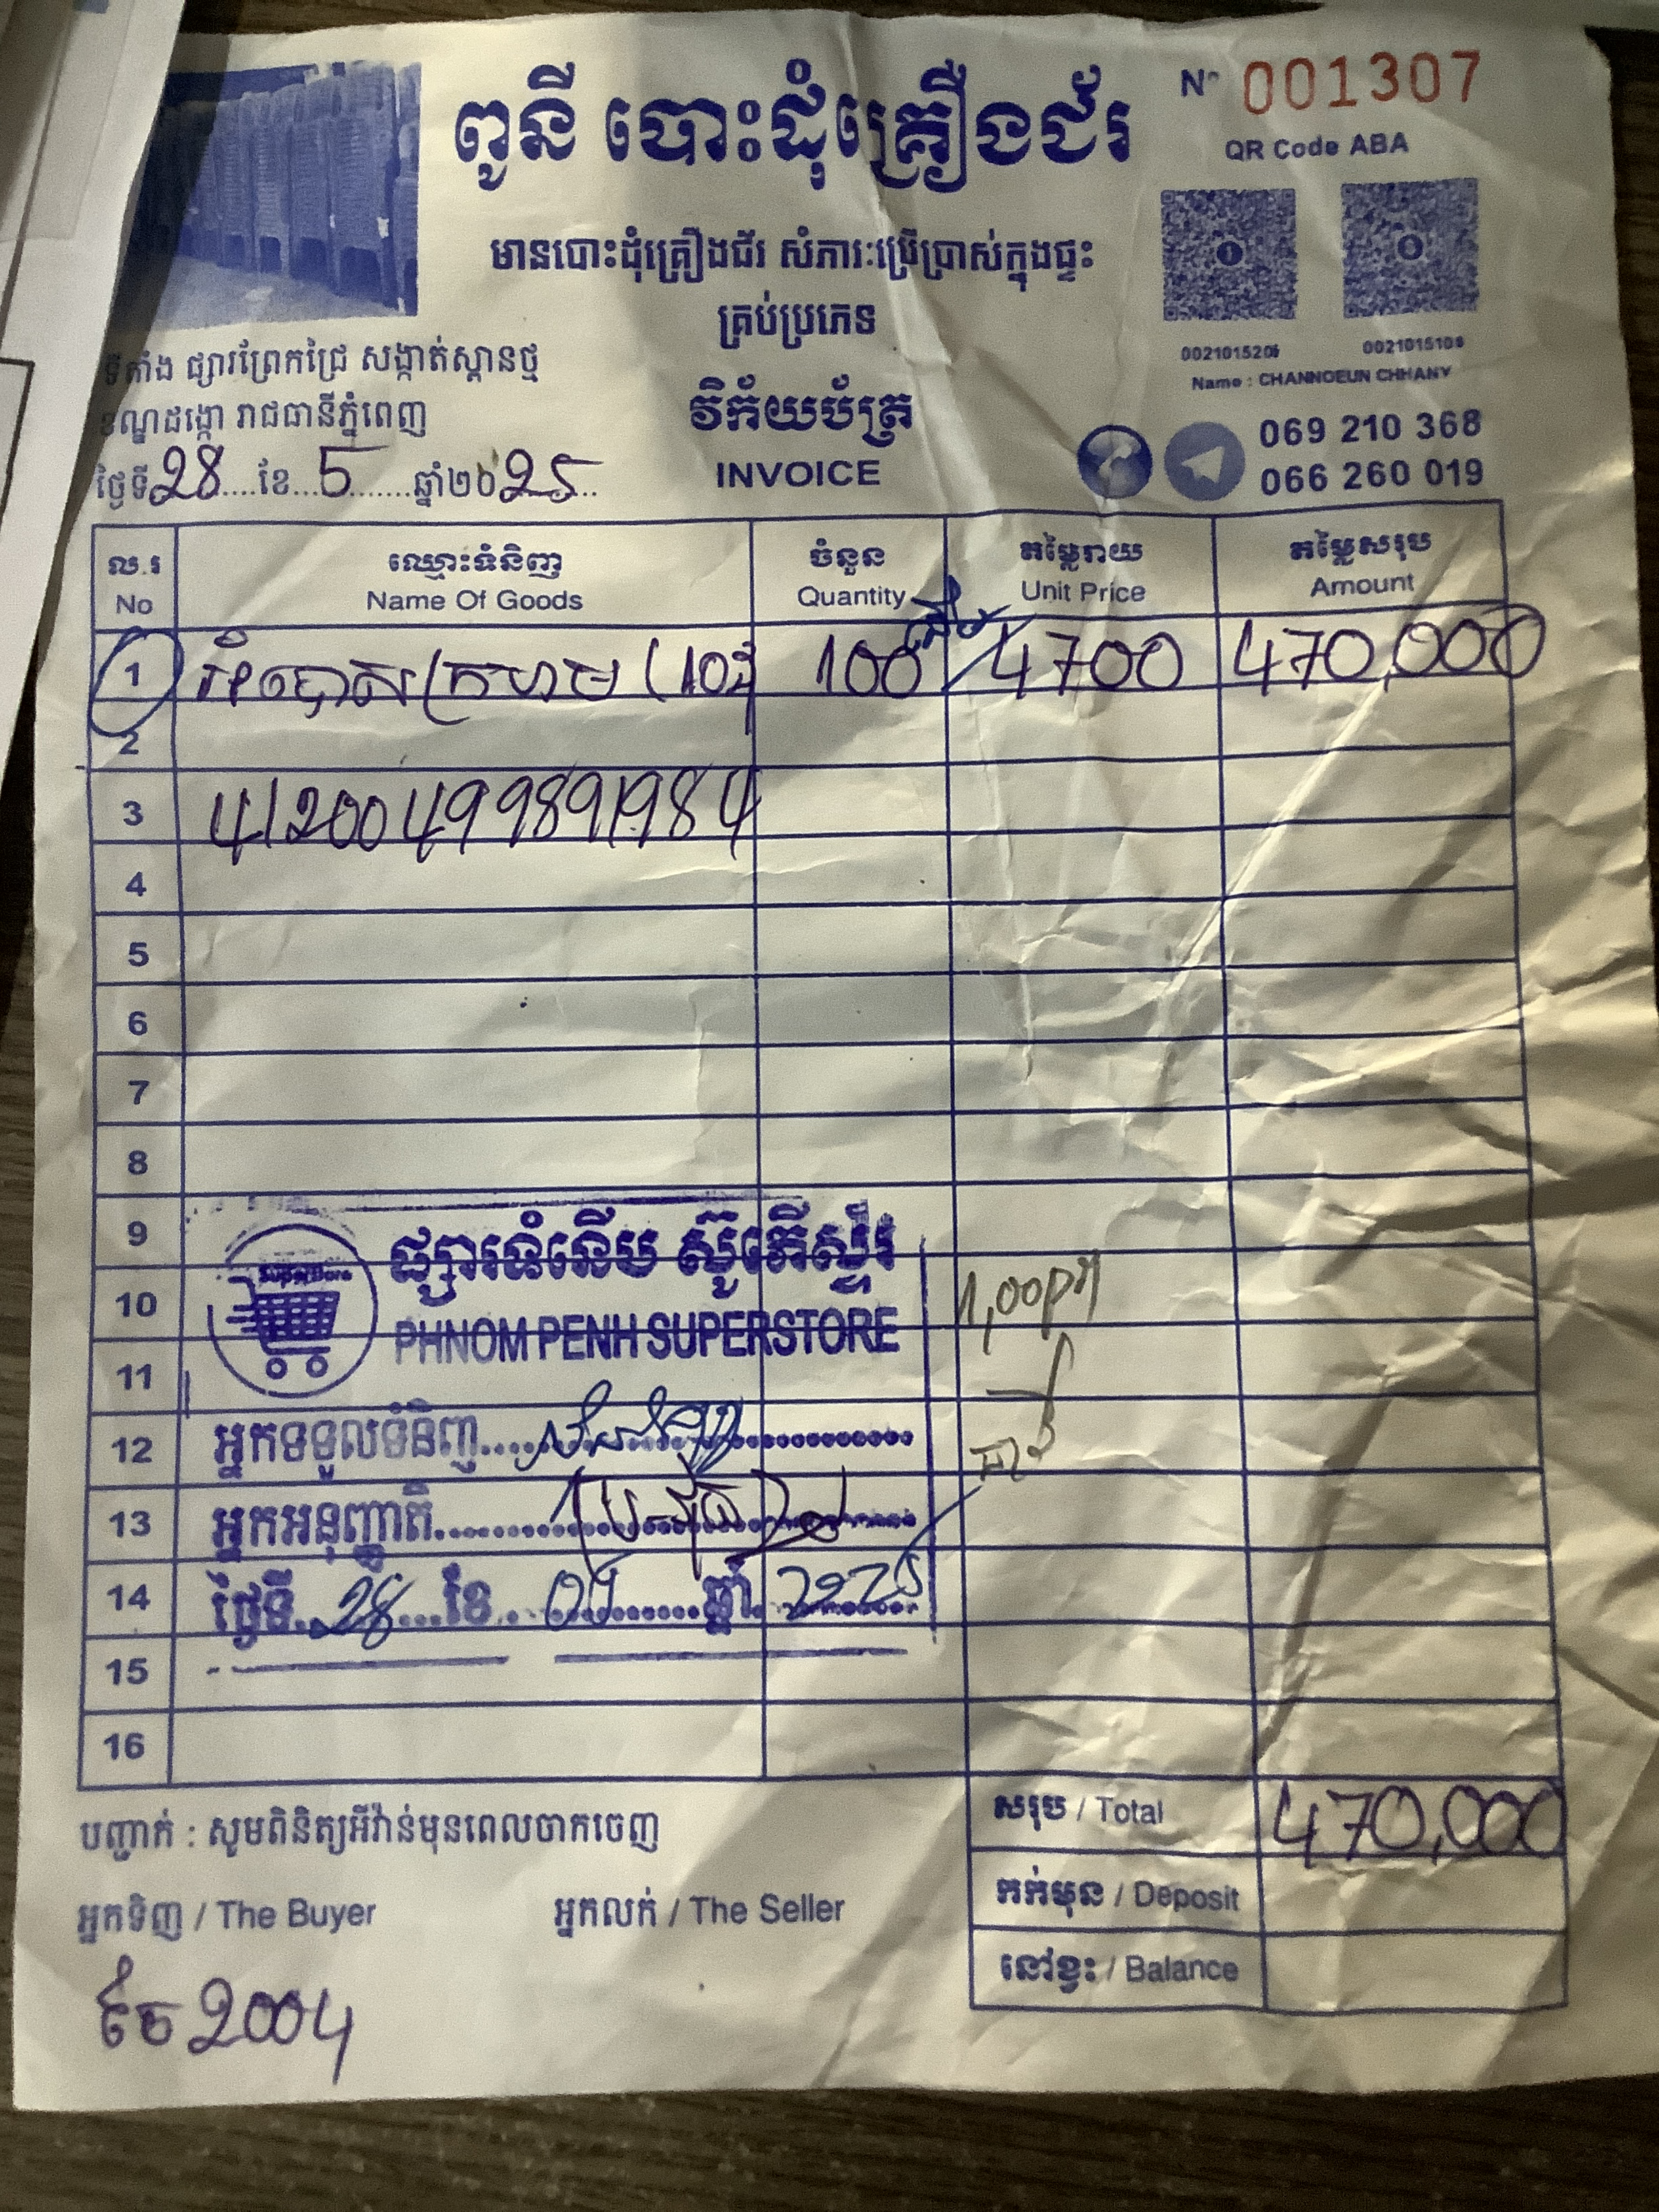 ពូនី បោះដុំគ្រឿងជ័រ
Nº 001307
QR Code ABA
មានបោះដុំគ្រឿងជ័រ សំភារៈប្រើប្រាស់ក្នុងផ្ទះ
គ្រប់ប្រភេទ
Name : CHANNOEUN CHHANY
ទីតាំង ផ្សារព្រែកជ្រៃ សង្កាត់ស្ពានថ្ម
ខណ្ឌដង្កោ រាជធានីភ្នំពេញ
វិក័យប័ត្រ
INVOICE
069 210 368
066 260 019
ថ្ងៃទី 28 ខែ 5 ឆ្នាំ២០ 25
ល.រ ឈ្មោះទំនិញ ចំនួន តម្លៃរាយ តម្លៃសរុប
No Name Of Goods Quantity Unit Price Amount
1 អំបោសក្រហម (10 100 4700 470,000
2
3 41200499891984
4
5
6
7
8
9
ផ្សារទំនើប ស៊ូភើស្ទ័រ
10
PHNOM PENH SUPERSTORE
11
12 អ្នកទទួលទំនិញ
13 អ្នកអនុញ្ញាតិ
14 ថ្ងៃទី 28 ខែ 05 ឆ្នាំ 2025
15
16
សរុប / Total 470,000
បញ្ជាក់ : សូមពិនិត្យអីវ៉ាន់មុនពេលចាកចេញ
កក់មុន / Deposit
អ្នកទិញ / The Buyer អ្នកលក់ / The Seller
នៅខ្វះ / Balance
2004